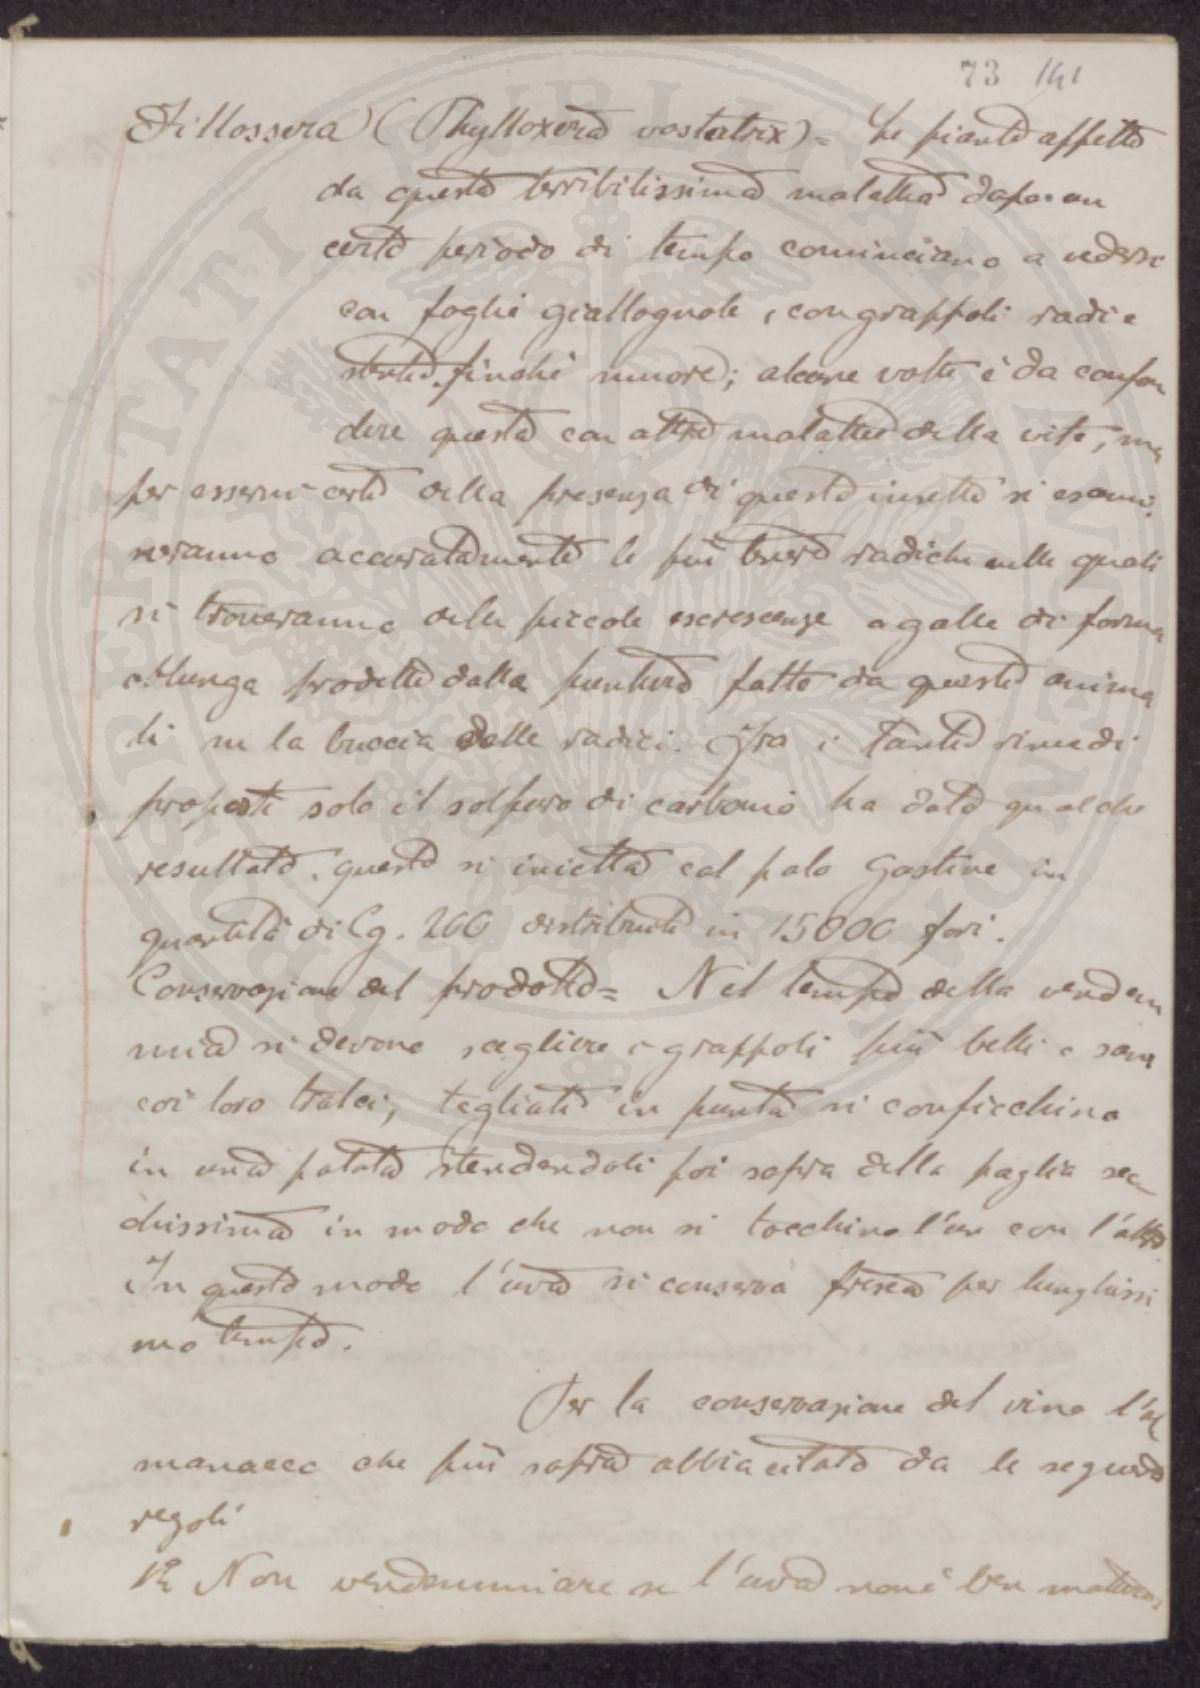 73 141
Fillossera (Phylloxera vastatrix) = Le piante affette
da questa terribilissima malattia dopo un
certo periodo di tempo cominciano a vedersi
con foglie giallognole, con grappoli radi e
stentati finchè muore; alcune volte è da confon
dere questa con altre malattie della vite, ma
per esserni certi della presenza di questo insetto si esami-
neranno accuratamente le più tenere radiche nelle quali
si troveranno delle piccole escrescenze a galle di forma
oblunga prodotte dalla puntura fatte da questi anima
li su la buccia delle radici. Fra i tanti rimedi
proposti solo il solfuro di carbonio ha dato qualche
resultato. questo si inietta col palo Gastine in
quantità di Cg. 266 distribuiti in 15000 fori.
Conservazione del prodotto = Nel tempo della vendem
mia si devono scegliere i grappoli più belli e sani
coi loro tralci, tagliati in punta si conficchino
in una patata stendendoli poi sopra della paglia sec
chissima in modo che non si tocchino l'un con l'altro
In questo modo l'uva si conserva fresca per lunghissi
mo tempo.
Per la conservazione del vino l'al
manacco che più sopra abbia citato da le seguenti
regoli
1ª Non vendemmiare se l'uva non è ben matura